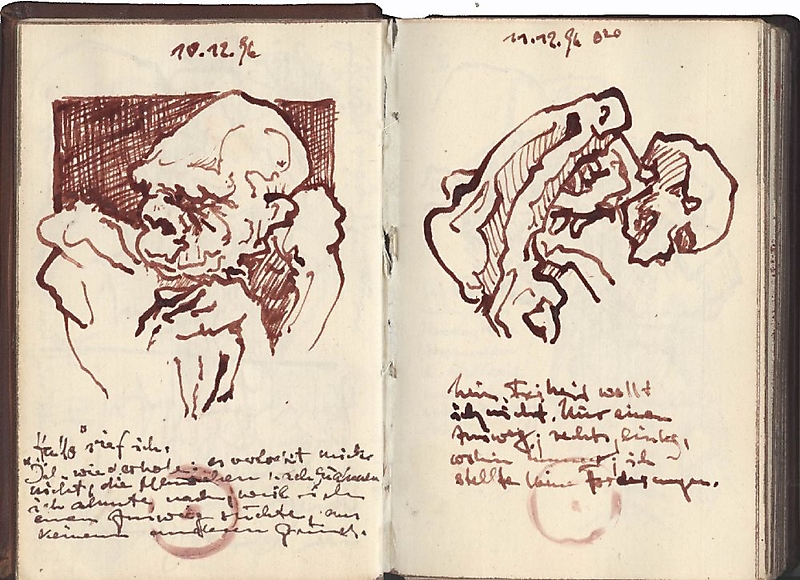 10.12.96
"Hallo" rief ich:
"Ich wiederhole: es verlockt mich
nicht, die Menschen nachzuahmen
ich ahmte nach, weil ich
einen Ausweg suchte, aus
keinem anderen Grund.
11.12.96 0²⁰
Nein, Freiheit wollt
ich nicht. Nur einen
Ausweg; rechts, links,
wohin immer; ich
stellte keine Forderungen.